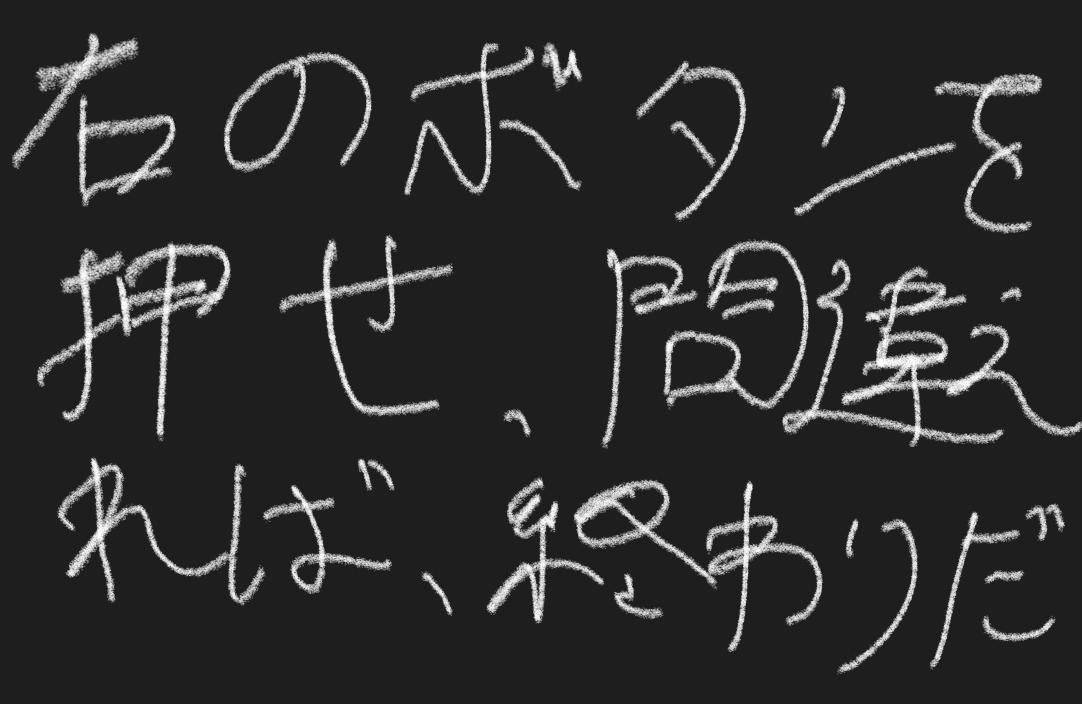 右のボタンを
押せ、間違え
れば、終わりだ